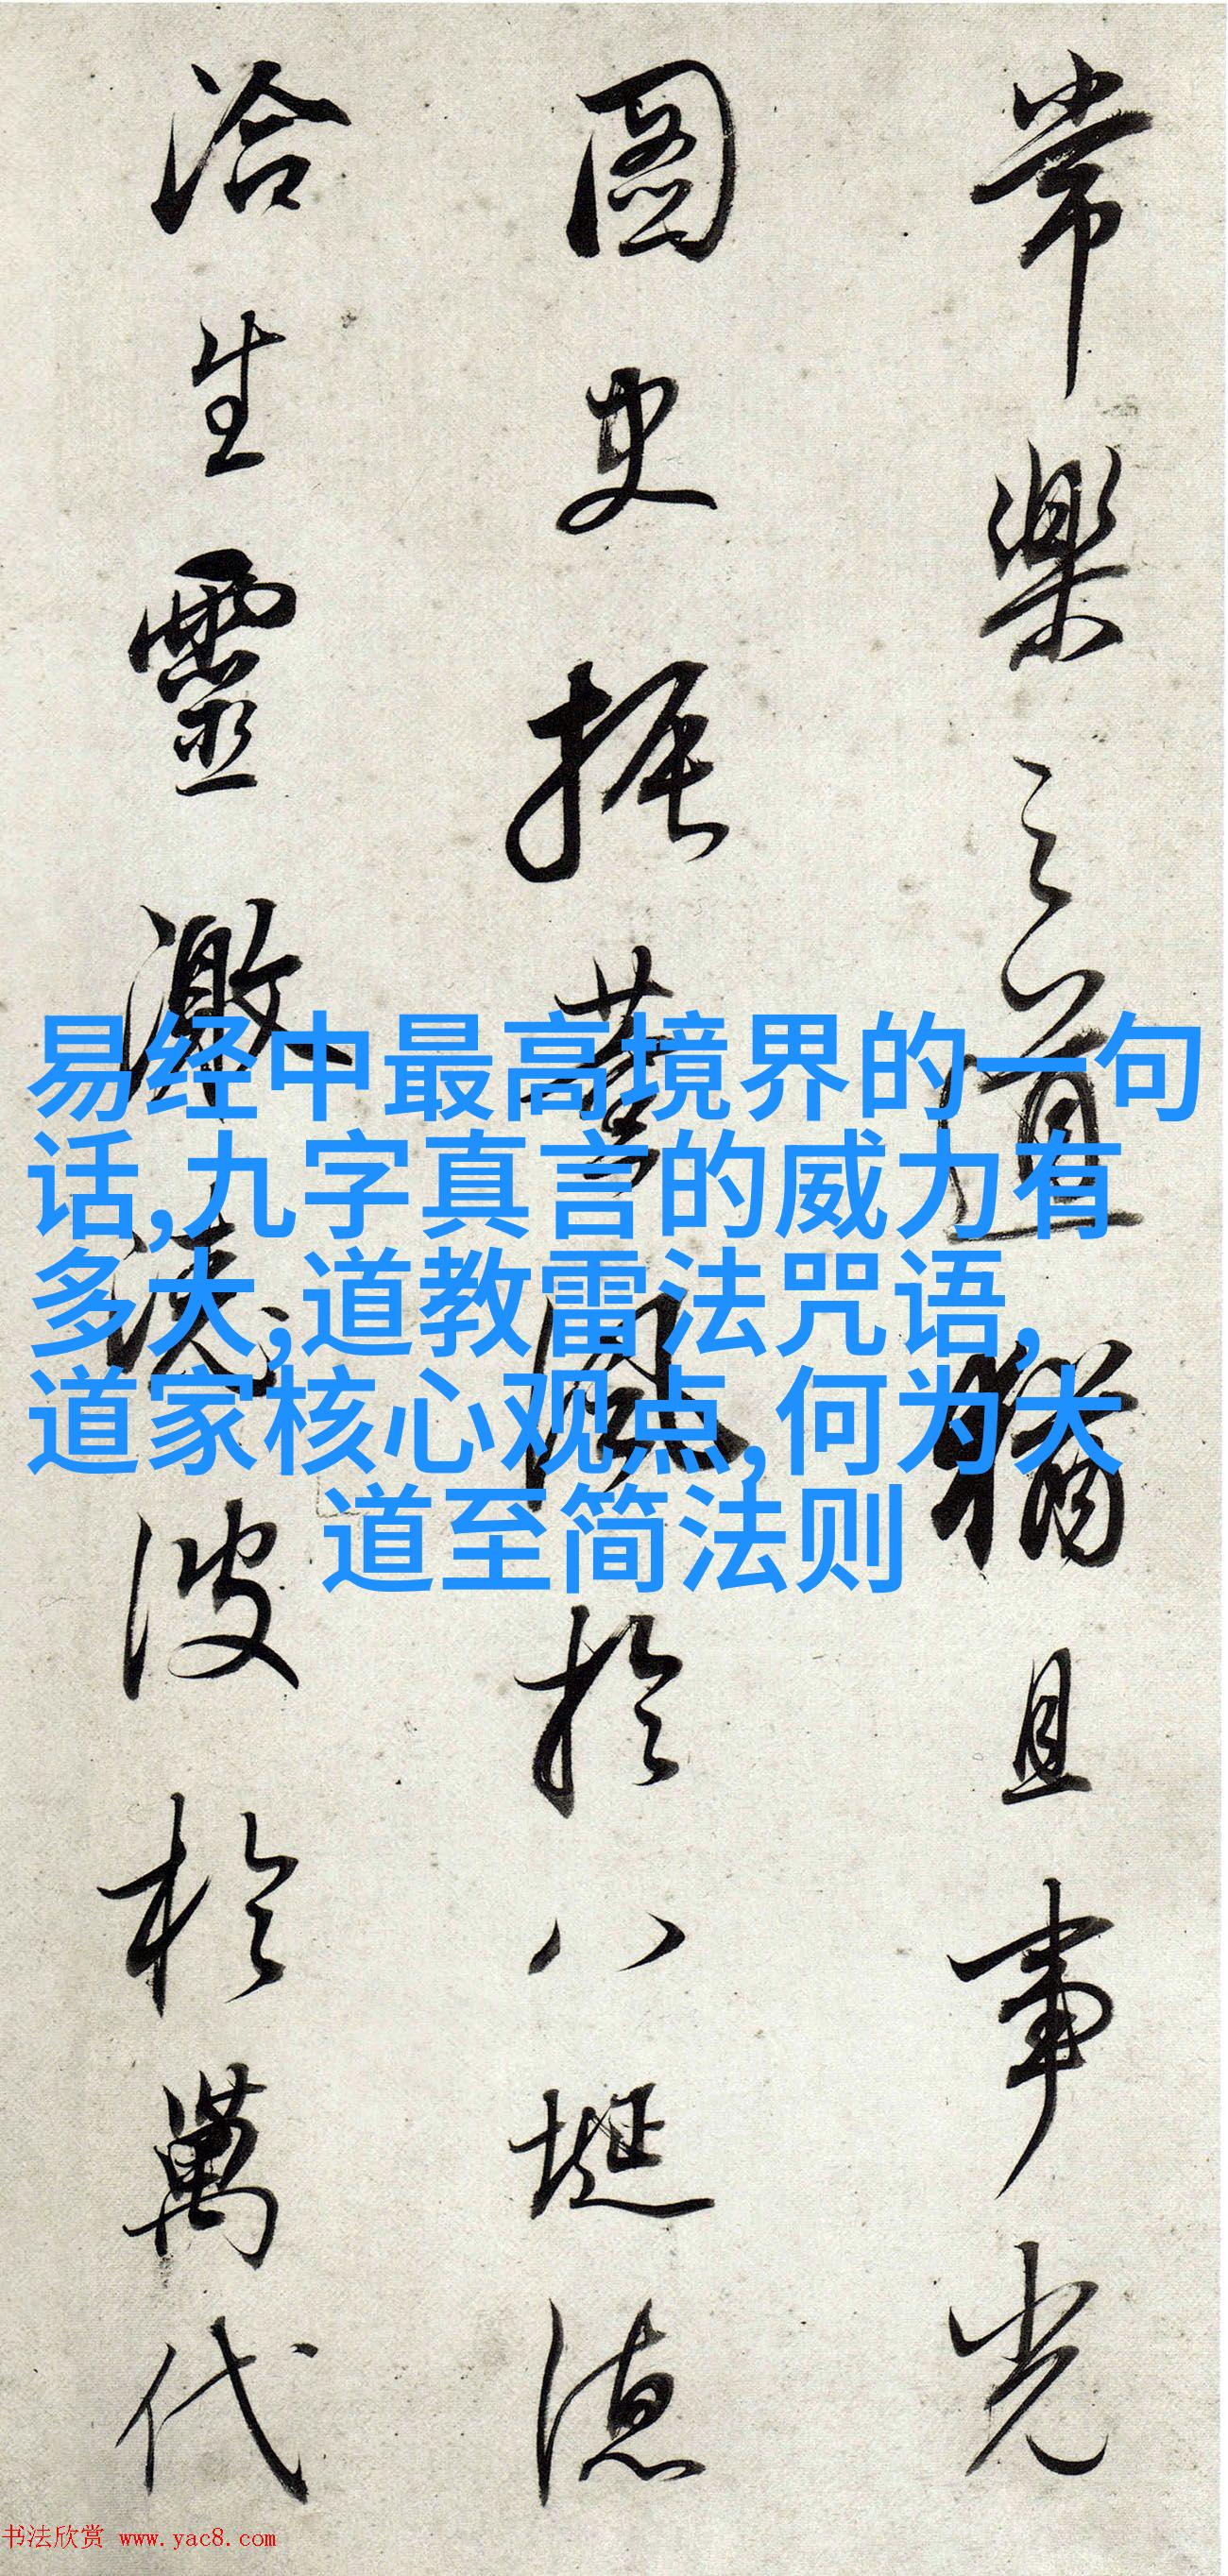 常樂之道猶且事光
圖史振薰風於八埏德
洽生靈激法波於萬代
易经中最高境界的一句
话,九字真言的威力有
多大,道教雷法咒语,
道家核心观点,何为大
道至简法则
书法欣赏 www.yac8.com